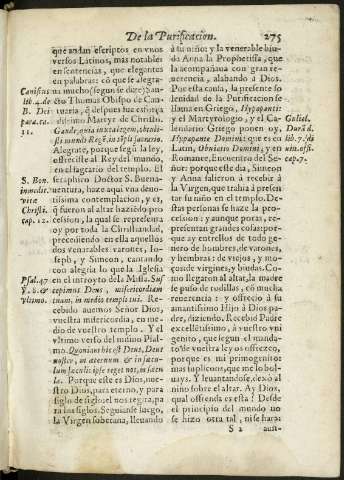 De la Purificacion. 275
que andan escriptos en vnos
versos Latinos, mas notables
en sentencias, que elegantes
en palabras: có que se alegra-
ua mucho (segun se dize) San-
cto Thomas Obispo de Can-
tuaria, q̃ despues fue esforça-
dissimo Martyr de Christo.
Alegrate, porque segũ la ley,
ofreciste al Rey del mundo,
en el sagrario del templo. El
seraphico Doctor S. Buena-
uentura, haze aqui vna deuo-
tissima contemplacion, y es,
q̃ fueron al altar haziẽdo pro
cession, la qual se representa
oy por toda la Christiandad,
precediendo en ella aquellos
dos venerables varones, Io-
seph, y Simeon, cantando
con alegria lo que la Iglesia
en el introyto dela Missa. Sus
cepimus Deus, misericordiam
tuam, in medio templi tui. Re-
cebido auemos Señor Dios,
vuestra misericordia, en me-
dio de vuestro templo. Y el
vltimo verso del mismo Psal-
mo. Quoniam hic est Deus, Deus
noster, in æternum & in sæcu-
lum sæculi: ipse reget nos, in sæcu
la. Porque este es Dios, nue-
stro Dios, para eterno, y para
siglo de siglo: el nos regira, pa
ra los siglos. Seguiase luego,
la Virgen soberana, lleuando
Canisius
lib. 4. de
B. Dei-
para. ca.
11.
S. Bon.
in medit.
vitæ
Christi.
cap. 12.
Psal. 47
v. 8. &
vltimo.
à su niño: y la venerable biu-
da Anna la Prophetissa, que
la acompañaua con gran re-
uerencia, alabando à Dios.
Por esta causa, la presente so
lenidad de la Purificacion se
llama en Griego, Hypapanti:
y el Martyrologio, y el Ca-
lendario Griego ponen oy,
Hypapante Domini; que es en
Latin, Obuiatio Domini; y en
Romance, Encuentro del Se-
ñor: porque este dia, Simeon
y Anna salieron à recebir à
la Virgen, que trahia à presen
tar su niño en el templo. De-
stas personas se haze la pro-
cession: y aunque pocas, re-
presentan grandes cosas: por-
que ay entrellos de todo ge-
nero de hombres, de varones,
y hembras: de viejos, y mo-
ços de virgines, y biudas. Co-
mo llegaron al altar, la madre
se puso de rodillas, có mucha
reuerencia: y ofrecio à su
amantissimo Hijo à Dios pa-
dre, diziendo. Recebid Padre
excelẽtissimo, à vuestro vni
genito, que segun el manda-
to de vuestra ley os ofrezco,
porque es mi primogenito:
mas suplicoos, que me lo bol-
uays. Y leuantandose, dexò al
niño sobre el altar. Ay Dios,
qual ofrenda es esta? Desde
el principio del mundo no
se hizo otra tal, ni se hara:
cap. 7.
S 2 aust-